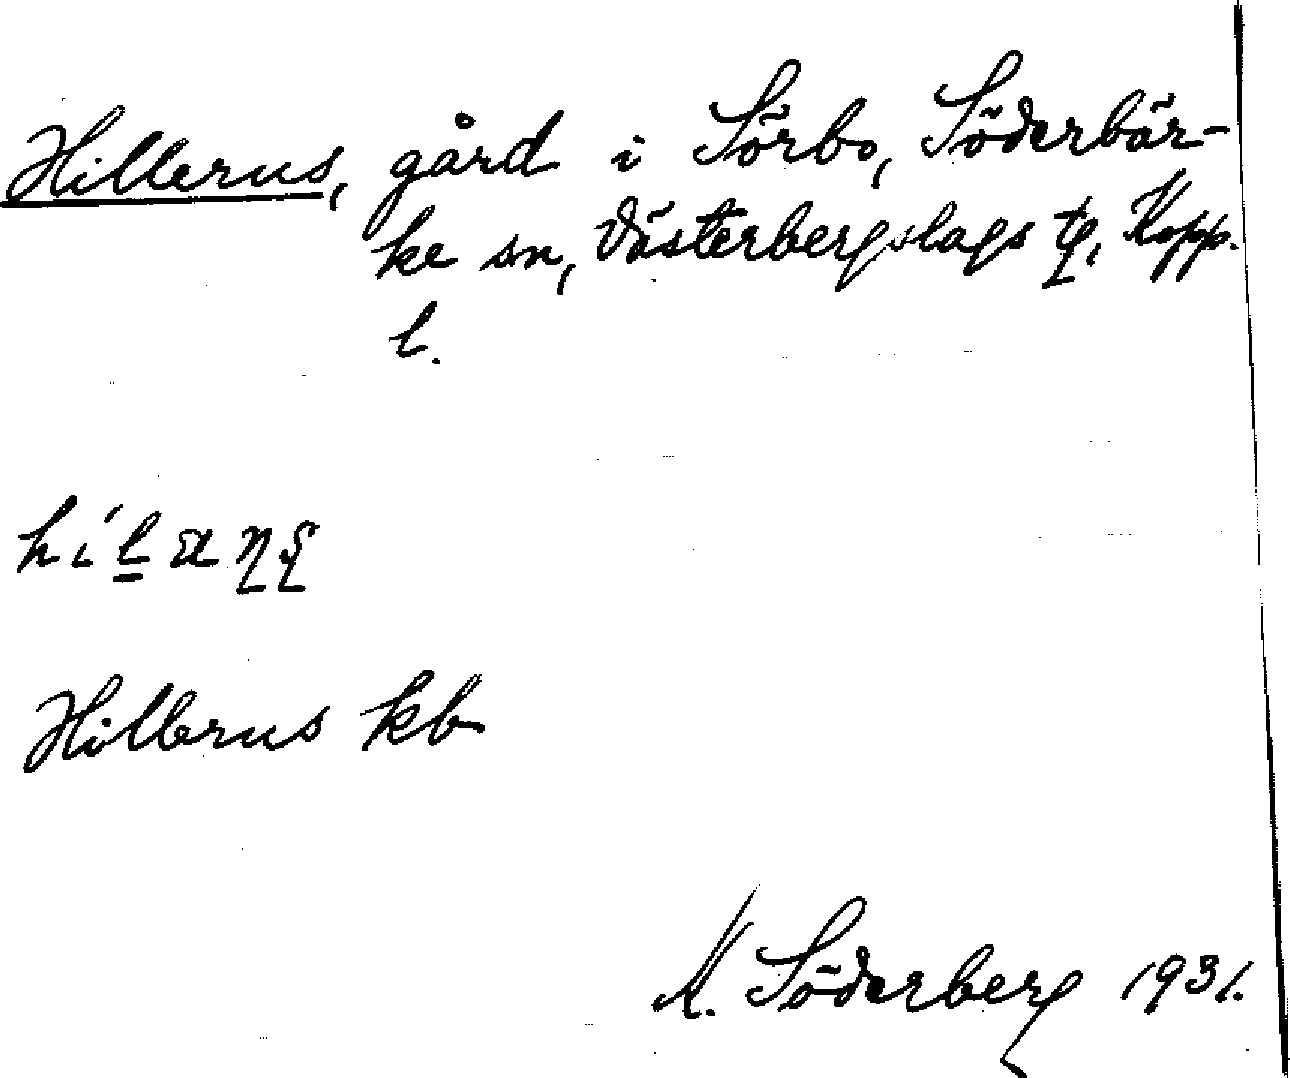 Hillerus, gård i Sörbo, Söderbär-
ke sn, Västerbergslags tg, Kopp.
l.
Hillerus kb
K. Söderberg 1931.